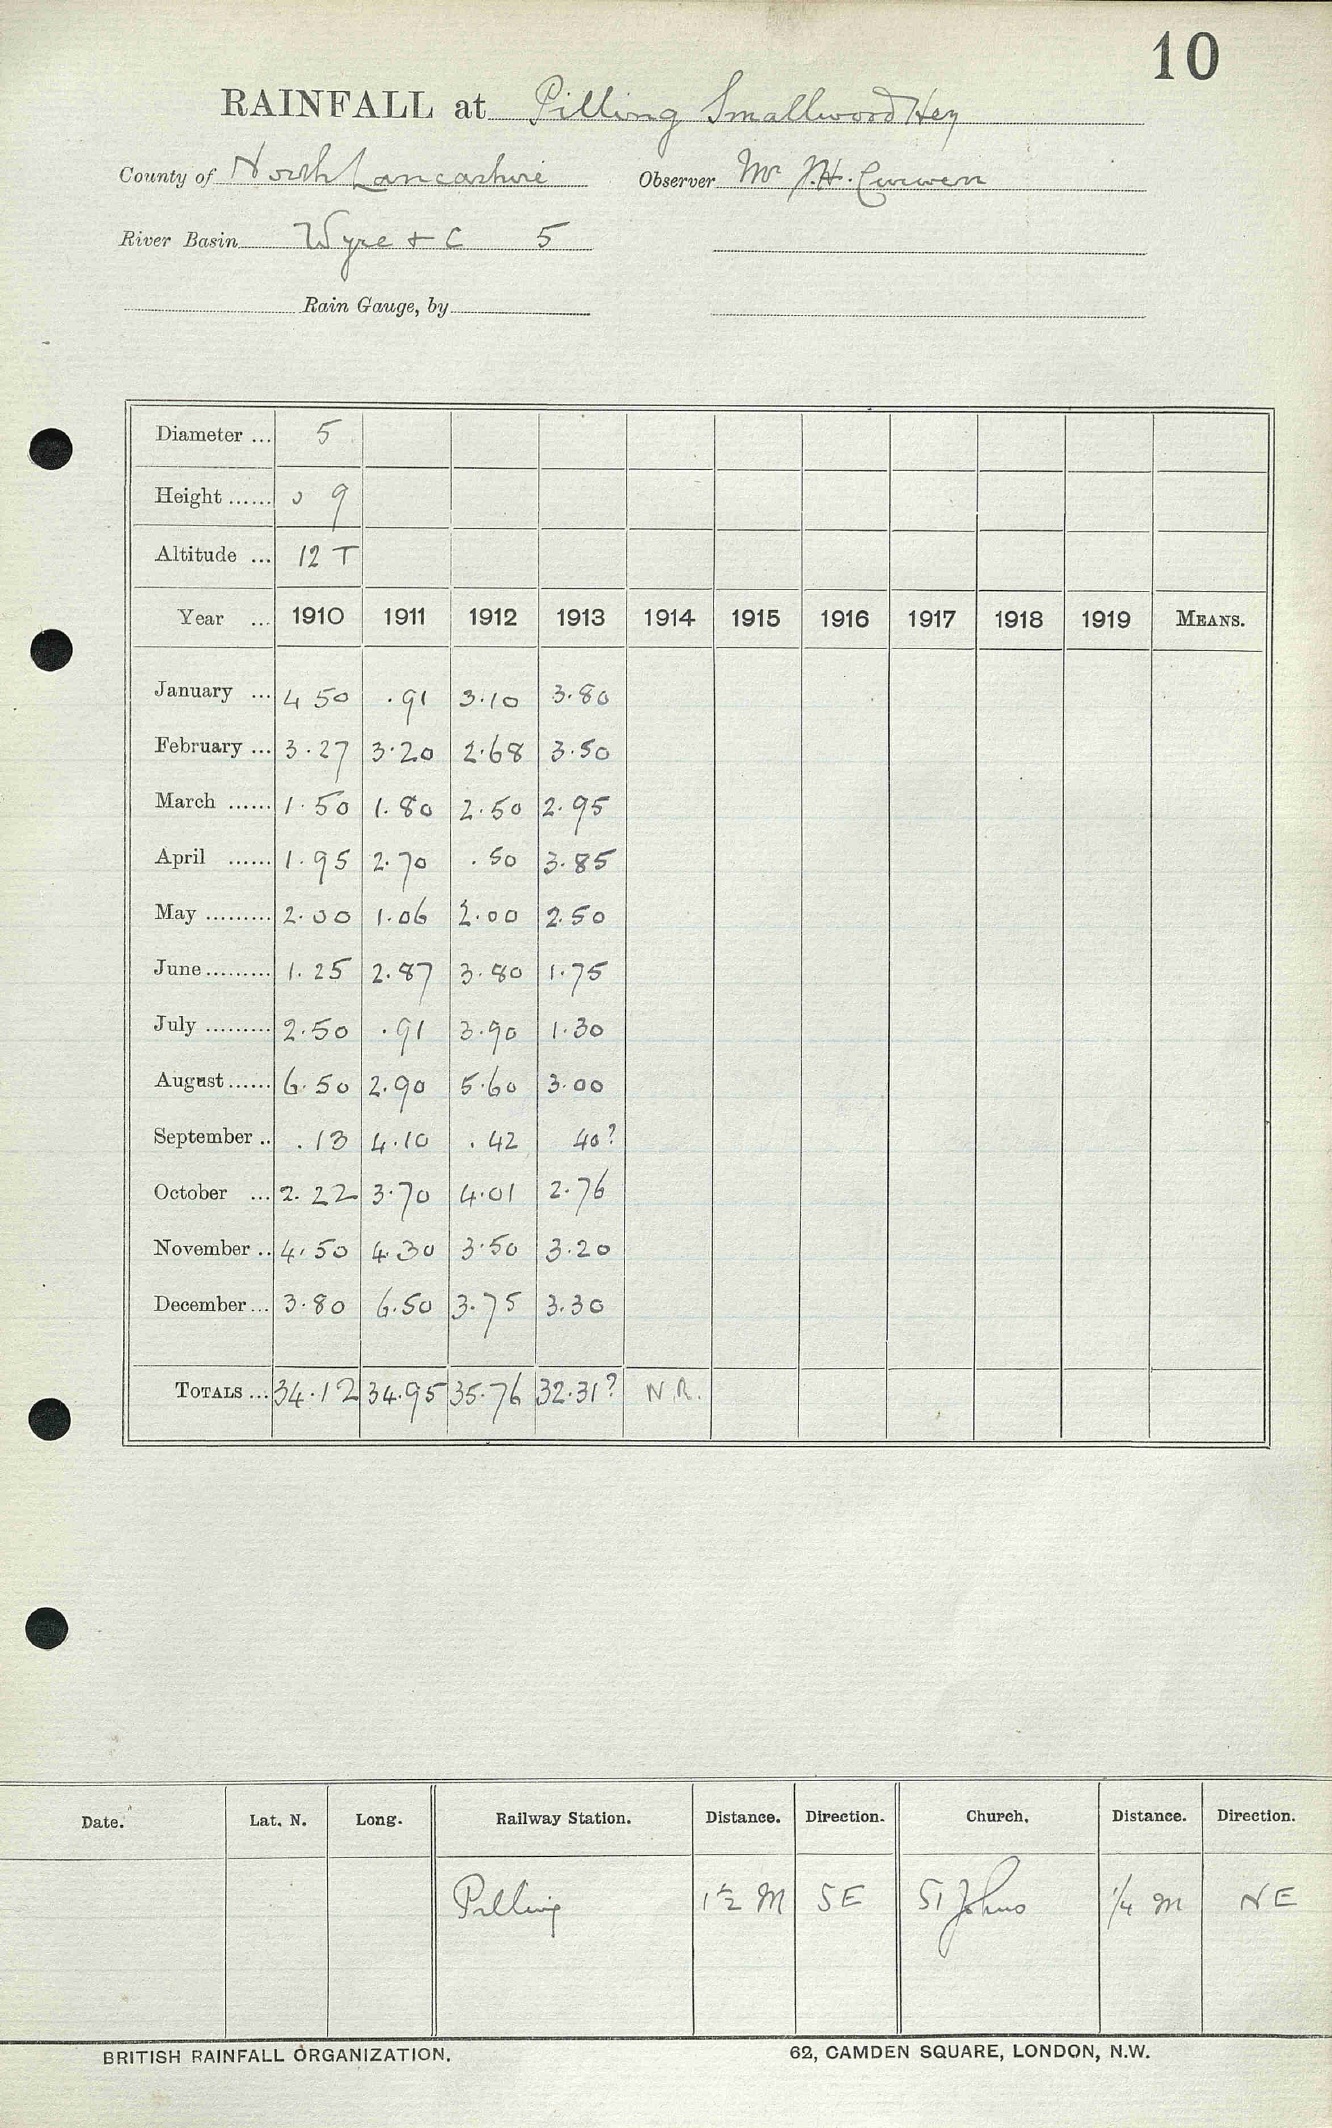 10
RAINFALL at Pilling Smallwood Hey
County of North Lancashire Observer Mr J.H. Curwen
River Basin Wyre + C 5
Rain Gauge, by
Diameter ... 5
Height ...... 0 9
Altitude ... 12 T
Year ... 1910 1911 1912 1913 1914 1915 1916 1917 1918 1919 MEANS.
January ... 4 50 .91 3.10 3.80
February ... 3.27 3.20 2.68 3.50
March ...... 1.50 1.80 2.50 2.95
April ...... 1.95 2.70 .50 3.85
May ......... 2.00 1.06 2.00 2.50
June ......... 1.25 2.87 3.80 1.75
July ......... 2.50 .91 3.90 1.30
August ...... 6.50 2.90 5.60 3.00
September .. .13 4.10 .42 40?
October ... 2.22 3.70 4.01 2.76
November .. 4.50 4.30 3.50 3.20
December ... 3.80 6.50 3.75 3.30
TOTALS ... 34.12 34.95 35.76 32.31? N.R.
Date. Lat. N. Long. Railway Station. Distance. Direction. Church. Distance. Direction.
Pilling 1½ M SE St Johns ¼ m NE
BRITISH RAINFALL ORGANIZATION. 62, CAMDEN SQUARE, LONDON, N.W.